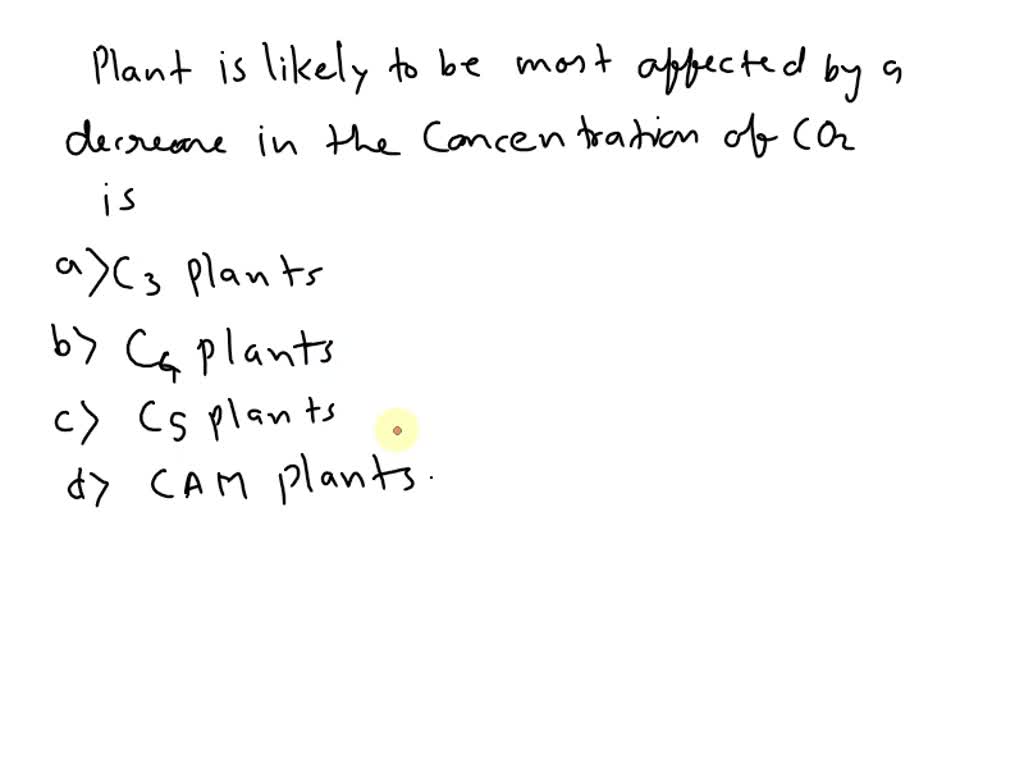 Plant is likely to be most affected by a
decrease in the Concentration of CO2
is
a> C3 plants
b> C4 plants
c> C5 plants
d> CAM plants.